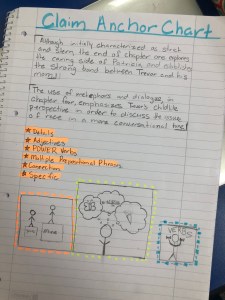 Claim Anchor Chart
Although initially characterized as strict
and stern, the end of chapter one explores
the caring side of Patricia, and establishes
the strong bond between Trevor and his
mom!
The use of metaphors and dialogue, in
chapter four, emphasizes Trevor's childlike
perspective in order to discuss the issue
of race in a more conversational tone!
★ Details
★ Adjectives
★ POWER Verbs
★ Multiple Prepositional Phrases
★ Connection
★ Specific
VERBS